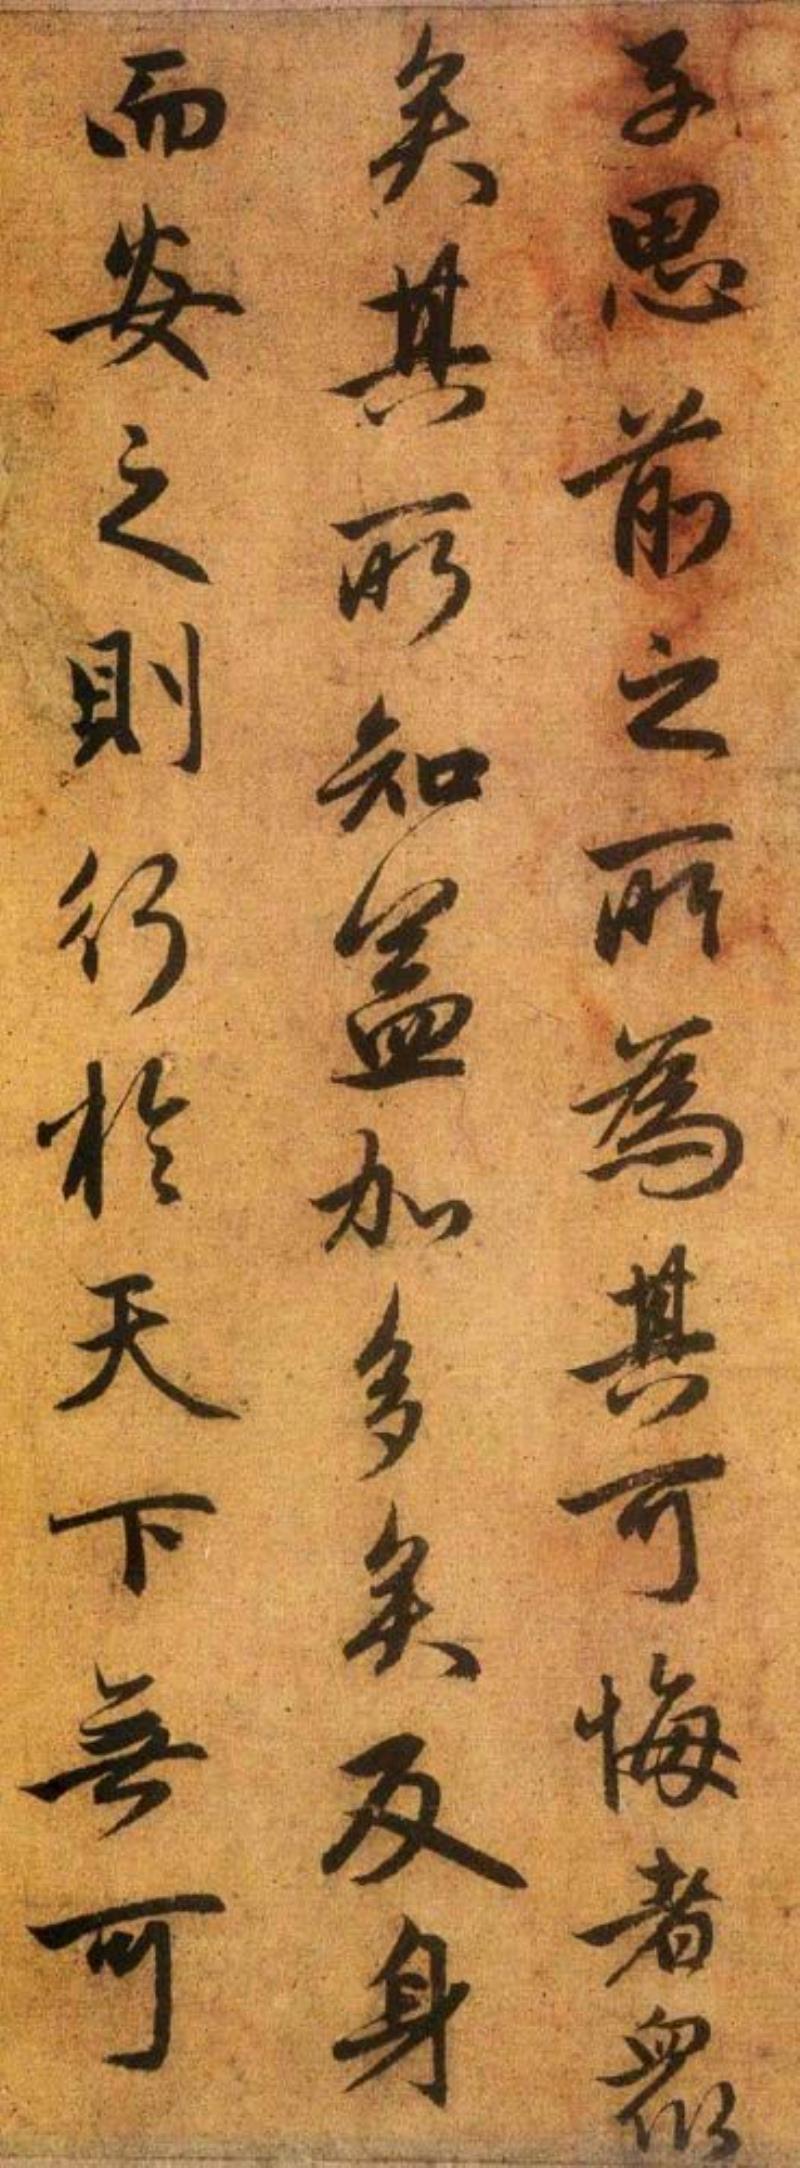 子思前之所為其可悔者眾
矣其所知盖加多矣反身
而安之則行於天下無可